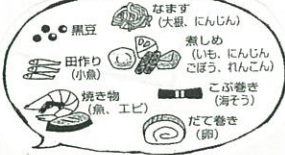 なます
(大根、にんじん)
黒豆
煮しめ
(いも、にんじん
ごぼう、れんこん)
田作り
(小魚)
こぶ巻き
(海そう)
焼き物
(魚、エビ)
だて巻き
(卵)